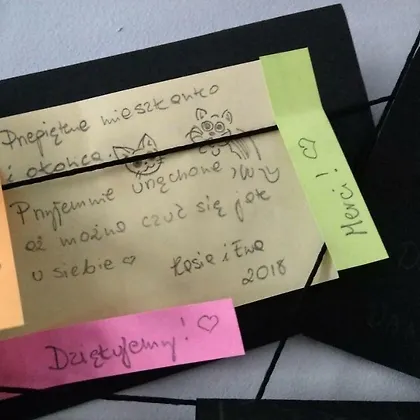 Przepiękne mieszkanko
i okolica.
Przyjemnie urządzone,
aż można czuć się jak
u siebie ♡
Kasia i Ewa
2018
Merci! ♡
Dziękujemy! ♡